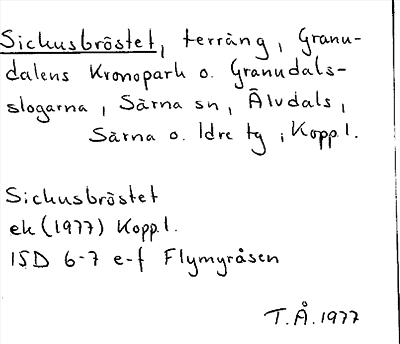 Sickusbröstet, terräng, Granu-
dalens Kronopark o. Granudals-
skogarna, Särna sn, Älvdals,
Särna o. Idre tg, Kopp.l.
Sickusbröstet
ek (1977) Kopp.l.
15D 6-7 e-f Flymyråsen
T.Å. 1977